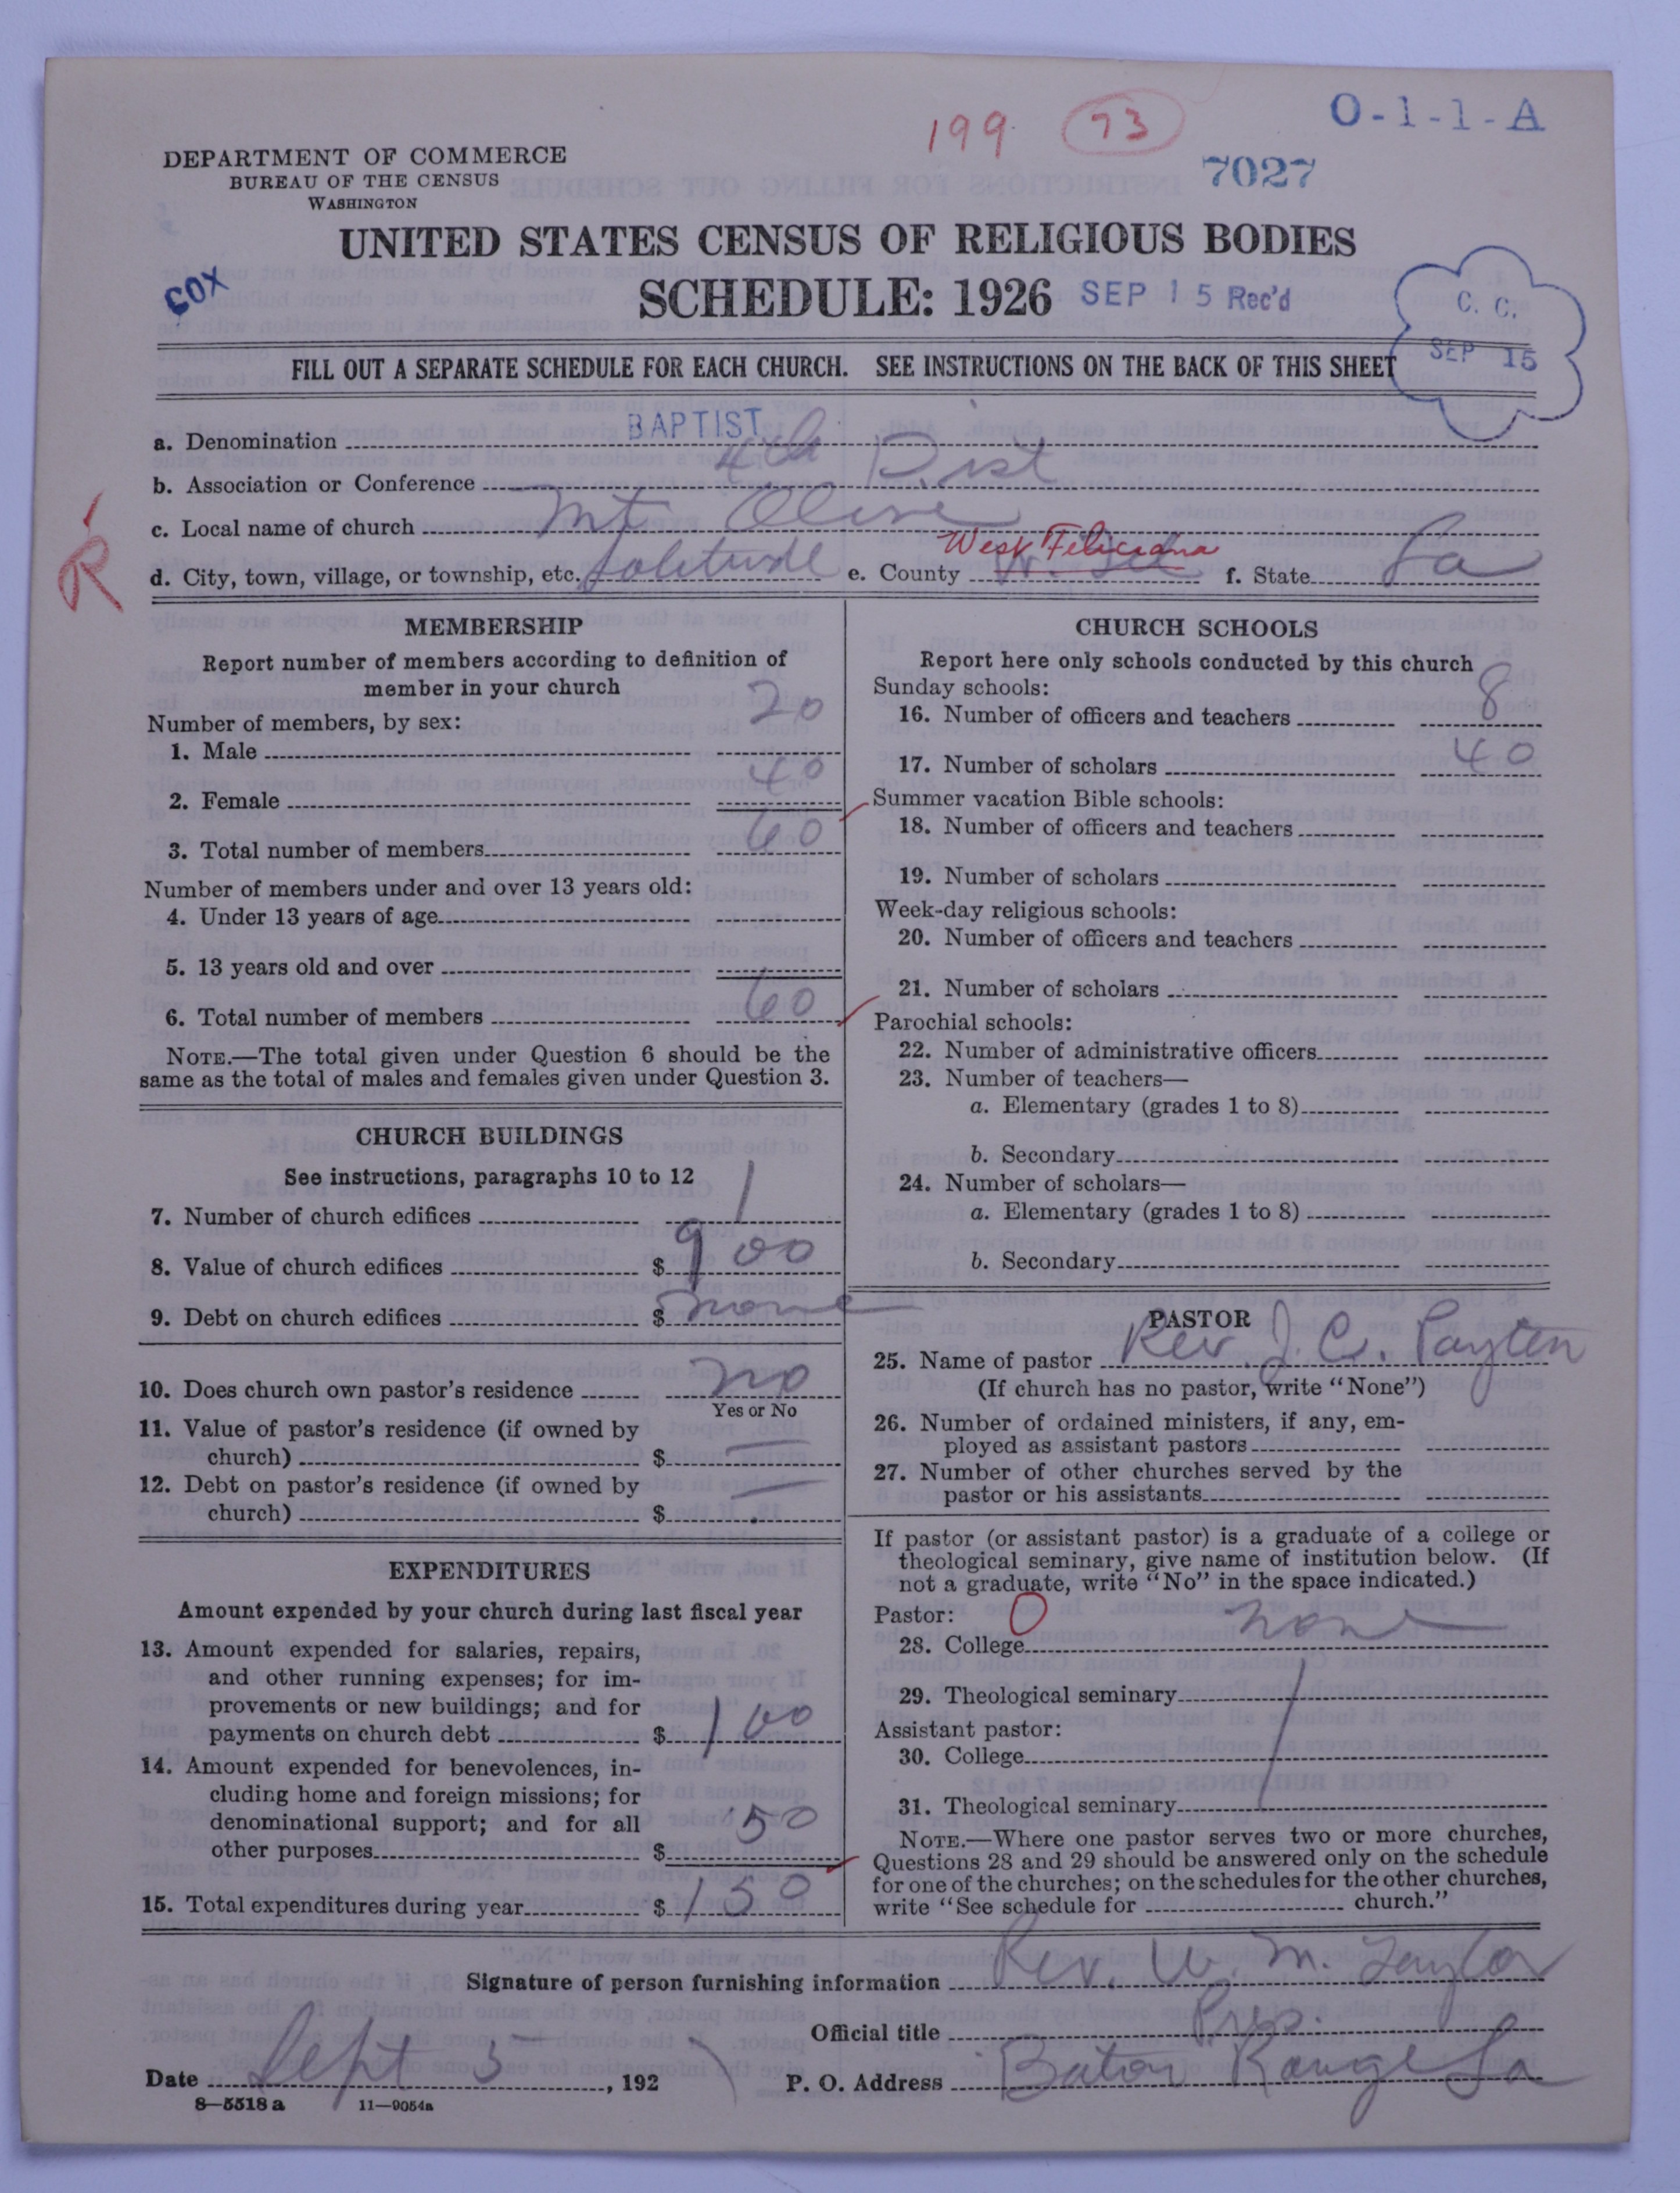 199 73 O-1-1-A
DEPARTMENT OF COMMERCE
BUREAU OF THE CENSUS
WASHINGTON
7027
UNITED STATES CENSUS OF RELIGIOUS BODIES
COX
SCHEDULE: 1926 SEP 15 Rec'd
C. C.
SEP 15
FILL OUT A SEPARATE SCHEDULE FOR EACH CHURCH. SEE INSTRUCTIONS ON THE BACK OF THIS SHEET
a. Denomination BAPTIST
b. Association or Conference 4th Dist
c. Local name of church Mt Olive
R
d. City, town, village, or township, etc. Solitude e. County West Feliciana f. State La
MEMBERSHIP
Report number of members according to definition of
member in your church
Number of members, by sex:
1. Male 20
2. Female 40
3. Total number of members 60
Number of members under and over 13 years old:
4. Under 13 years of age
5. 13 years old and over
6. Total number of members 60
NOTE.—The total given under Question 6 should be the
same as the total of males and females given under Question 3.
CHURCH BUILDINGS
See instructions, paragraphs 10 to 12
7. Number of church edifices 1
8. Value of church edifices $ 900
9. Debt on church edifices $ none
10. Does church own pastor's residence no
Yes or No
11. Value of pastor's residence (if owned by
church) $ —
12. Debt on pastor's residence (if owned by
church) $ —
EXPENDITURES
Amount expended by your church during last fiscal year
13. Amount expended for salaries, repairs,
and other running expenses; for im-
provements or new buildings; and for
payments on church debt $ 100
14. Amount expended for benevolences, in-
cluding home and foreign missions; for
denominational support; and for all
other purposes $ 50
15. Total expenditures during year $ 150
CHURCH SCHOOLS
Report here only schools conducted by this church
Sunday schools:
16. Number of officers and teachers 8
17. Number of scholars 40
Summer vacation Bible schools:
18. Number of officers and teachers
19. Number of scholars
Week-day religious schools:
20. Number of officers and teachers
21. Number of scholars
Parochial schools:
22. Number of administrative officers
23. Number of teachers—
a. Elementary (grades 1 to 8)
b. Secondary
24. Number of scholars—
a. Elementary (grades 1 to 8)
b. Secondary
PASTOR
25. Name of pastor Rev. J. C. Payten
(If church has no pastor, write "None")
26. Number of ordained ministers, if any, em-
ployed as assistant pastors
27. Number of other churches served by the
pastor or his assistants
If pastor (or assistant pastor) is a graduate of a college or
theological seminary, give name of institution below. (If
not a graduate, write "No" in the space indicated.)
Pastor: O
28. College none
29. Theological seminary
Assistant pastor:
30. College
31. Theological seminary
NOTE.—Where one pastor serves two or more churches,
Questions 28 and 29 should be answered only on the schedule
for one of the churches; on the schedules for the other churches,
write "See schedule for church."
Signature of person furnishing information Rev. W. M. Taylor
Official title Pres.
Date Sept 5, 192 P. O. Address Baton Rouge La
8—5518a 11—9054a